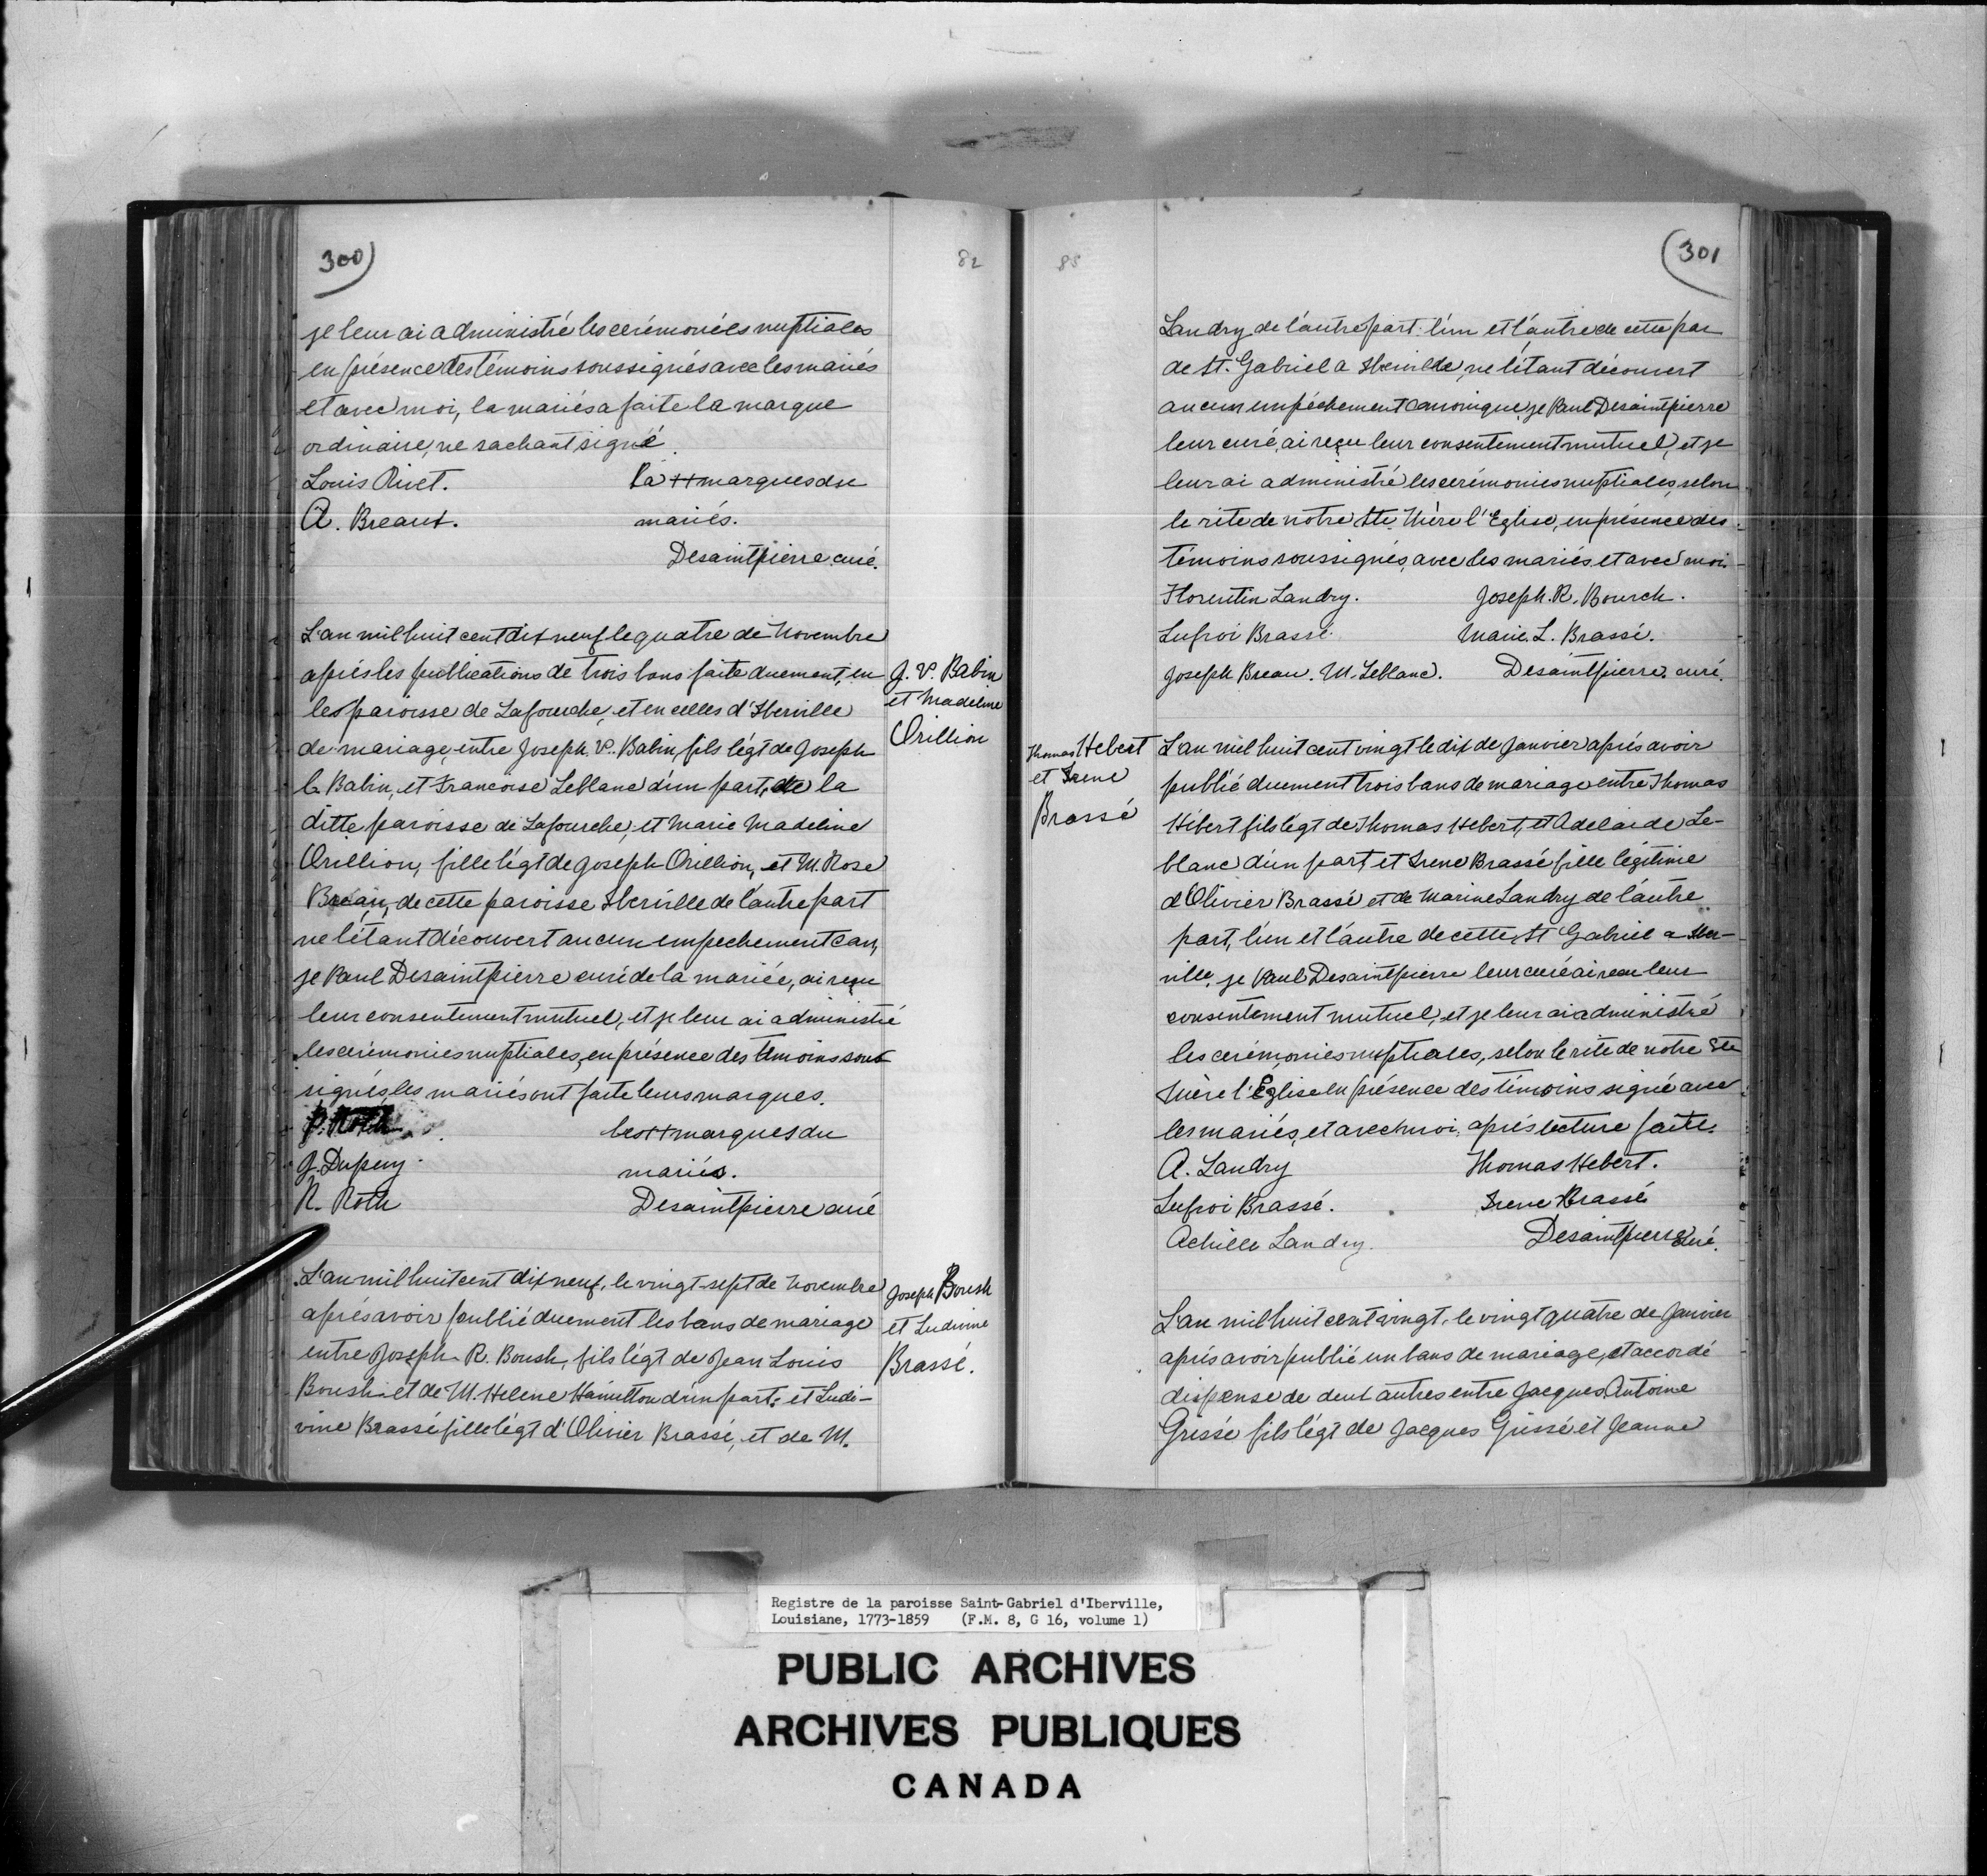 300
82
je leur ai administré les cerémonies nuptiales
en présence des témoins soussignés avec les mariés
et avec moi, la mariés a faite la marque
ordinaire, ne sachant signé.
Louis Rivet. la ++ marques du
A. Breaux. mariés.
Desaintpierre curé.
L'an mil huit cent dix neuf le quatre de Novembre
aprés les publications de trois bans faite duement, en
les paroisse de Lafourche, et en celles d'Iberville
de mariage, entre Joseph V. Babin, fils légt de Joseph
b. Babin, et Francoise Leblanc d'un part, de la
ditte paroisse de Lafourche, et Marie Madeline
Orillion, fille légt de Joseph Orillion, et M. Rose
Breau, de cette paroisse Iberville de l'autre part
ne l'étant découvert aucun empechement can,
je Paul Desaintpierre curé de la mariée, ai reçu
leur consentement mutuel, et je leur ai administré
les cerémonies nuptiales, en présence des témoins sous
signés, les mariés ont faite leurs marques.
P. Roth les ++ marques du
G. Dupuy. mariés.
N. Roth Desaintpierre curé
L'an mil huit cent dix neuf, le vingt-sept de Novembre
aprés avoir publié duement les bans de mariage
entre Joseph R. Boush, fils légt de Jean Louis
Boush et de M. Helene Hamilton d'un part; et Ludi-
vine Brassé fille légt d'Olivier Brassé, et de M.
J. V. Babin
et Madeline
Orillion
Joseph Boush
et Ludivine
Brassé.
85
301
Landry de l'autre part. l'un et l'autre de cette par
de St. Gabriel a Iberville, ne l'étant découvert
aucun empéchement canonique, je Paul Desaintpierre
leur curé, ai reçu leur consentement mutuel, et je
leur ai administré les cerémonies nuptiales, selon
le rite de notre Ste Mère l'Eglise, en présence des
témoins soussignés, avec les mariés, et avec moi.
Florentin Landry. Joseph. R. Bourch.
Lufroi Brassé. Marie. L. Brassé.
Joseph Breau. M. Leblanc. Desaintpierre, curé.
Thomas Hebert
et Irene
Brassé
L'an mil huit cent vingt le dix de Janvier aprés avoir
publié duement trois bans de mariage entre Thomas
Hébert fils légt de Thomas Hebert, et Adelaide Le-
blanc d'un part, et Irene Brassé fille légitime
d'Olivier Brassé et de Marine Landry de l'autre
part, l'un et l'autre de cette St Gabriel a Iber-
ville, je Paul Desaintpierre leur curé ai recu leur
consentement mutuel, et je leur ai administré
les cerémonies nuptiales, selon le rite de notre Ste
Mère l'Eglise en présence des témoins signé avec
les mariés, et avec moi, aprés lecture faite.
A. Landry Thomas Hebert.
Lufroi Brassé. Irene Brassé
Achille Landry. Desaintpierre curé.
L'an mil huit cent vingt, le vingt quatre de Janvier
aprés avoir publié un bans de mariage, et accordé
dispense de deux autres entre Jacques Antoine
Grissé fils légt de Jacques Grissé et Jeanne
Registre de la paroisse Saint-Gabriel d'Iberville,
Louisiane, 1773-1859 (F.M. 8, G 16, volume 1)
PUBLIC ARCHIVES
ARCHIVES PUBLIQUES
CANADA